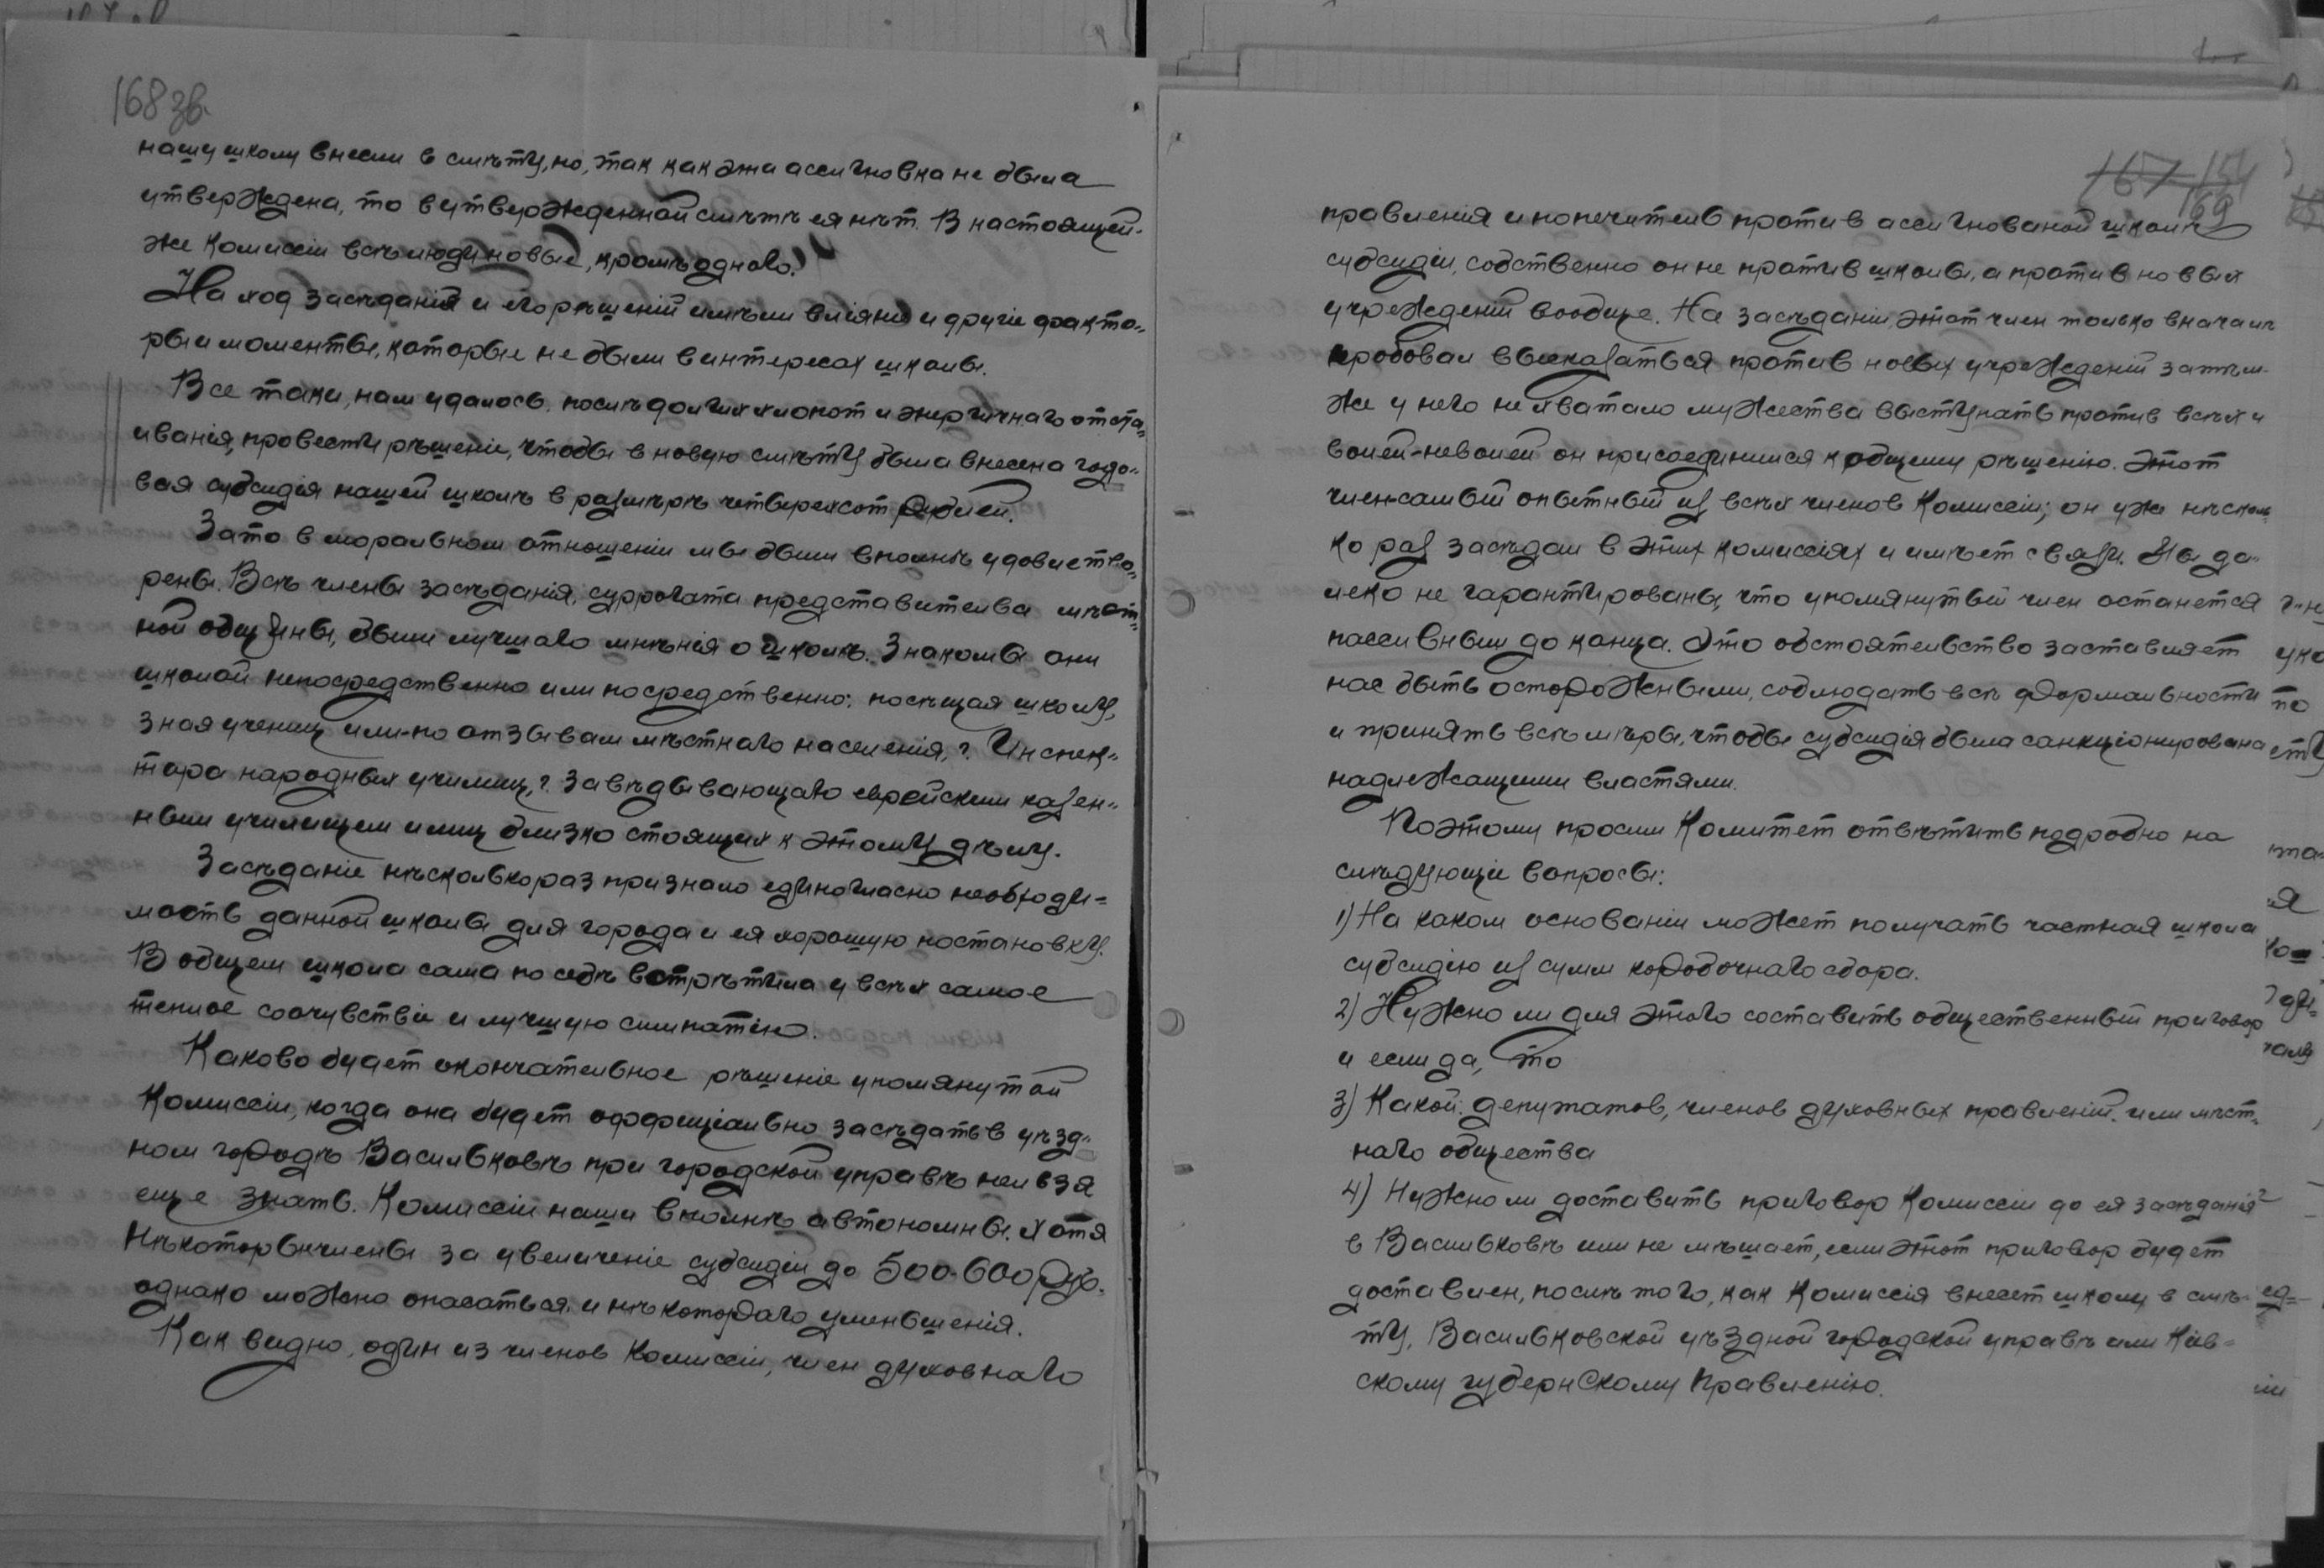 168 зв.
нашу школу внесли в смѣту, но, так как эта ассигновка не была
утверждена, то в утвержденной смѣтѣ ея нѣт. В настоящей-
же Комиссіи всѣ люди новые, кромѣ одного.
На ход засѣданія и его рѣшеній имѣли вліяніе и другіе факто-
ры и моменты, которые не были в интересах школы.
Все таки, нам удалось, послѣ долгих хлопот и энергичнаго отста-
иванія, провести рѣшеніе, чтобы в новую смѣту была внесена годо-
вая субсидія нашей школѣ в размѣрѣ четверехсот рублей.
Зато в моральном отношеніи мы были вполнѣ удовлетво-
рены. Всѣ члены засѣданія, суррогата представительва мѣст-
ной общины, были лучшаго мнѣнія о школѣ. Знакомы они
школой непосредственно или посредственно: посѣщая школу,
зная учениц или-по отзывам мѣстнаго населенія, г. Инспек-
тора народных училищ, г. Завѣдывающаго еврейским казен-
ным училищем и лиц близко стоящих к этому дѣлу.
Засѣданіе нѣсколько раз признало единогласно необходи-
мость данной школы для города и ея хорошую постановку.
В общем школа сама по себѣ встрѣтила у всѣх самое
теплое сочувствіе и лучшую симпатію.
Каково будет окончательное рѣшеніе упомянутой
Комиссіи, когда она будет оффиціально засѣдать в уѣзд-
ном городѣ Васильковѣ при городской управѣ нельзя
еще знать. Комиссіи наши вполнѣ автономны. Хотя
нѣкоторые члены за увеличеніе субсидіи до 500-600 руб.
однако можно опасаться и нѣкотораго уменьшенія.
Как видно, один из членов Комиссіи, член духовнаго
167 154
169
правленія и попечитель против ассигнованой школѣ
субсидіи, собственно он не против школы, а против новых
учрежденій вообще. На засѣданіи этот член только вначалѣ
пробовал высказаться против новых учрежденій затѣм-
же у него не хватало мужества выступать против всѣх и
волей-неволей он присоединился к общему рѣшенію. Этот
член-самый опытный из всѣх членов Комиссіи; он уже нѣсколь-
ко раз засѣдал в этих комиссіях и имѣет связи. Мы да-
леко не гарантированы, что упомянутый член останется
пассивным до конца. Это обстоятельство заставляет
нас быть осторожными, соблюдать всѣ формальности
и принять всѣ мѣры, чтобы субсидія была санкціонирована
надлежащими властями.
Поэтому просим Комитет отвѣтить подробно на
слѣдующіе вопросы:
1) На каком основаніи может получать частная школа
субсидію из сумм коробочнаго сбора.
2) Нужно ли для этого составить общественный приговор
и если да, то
3) Какой: депутатов, членов духовных правленій или мѣст-
наго общества
4) Нужно ли доставить приговор Комиссіи до ея засѣданія
в Васильковѣ или не мѣшает, если этот приговор будет
доставлен, послѣ того, как Комиссія внесет школу в смѣ-
ту, Васильковской уѣздной городской управѣ или Кіев-
скому губернскому Правленію.